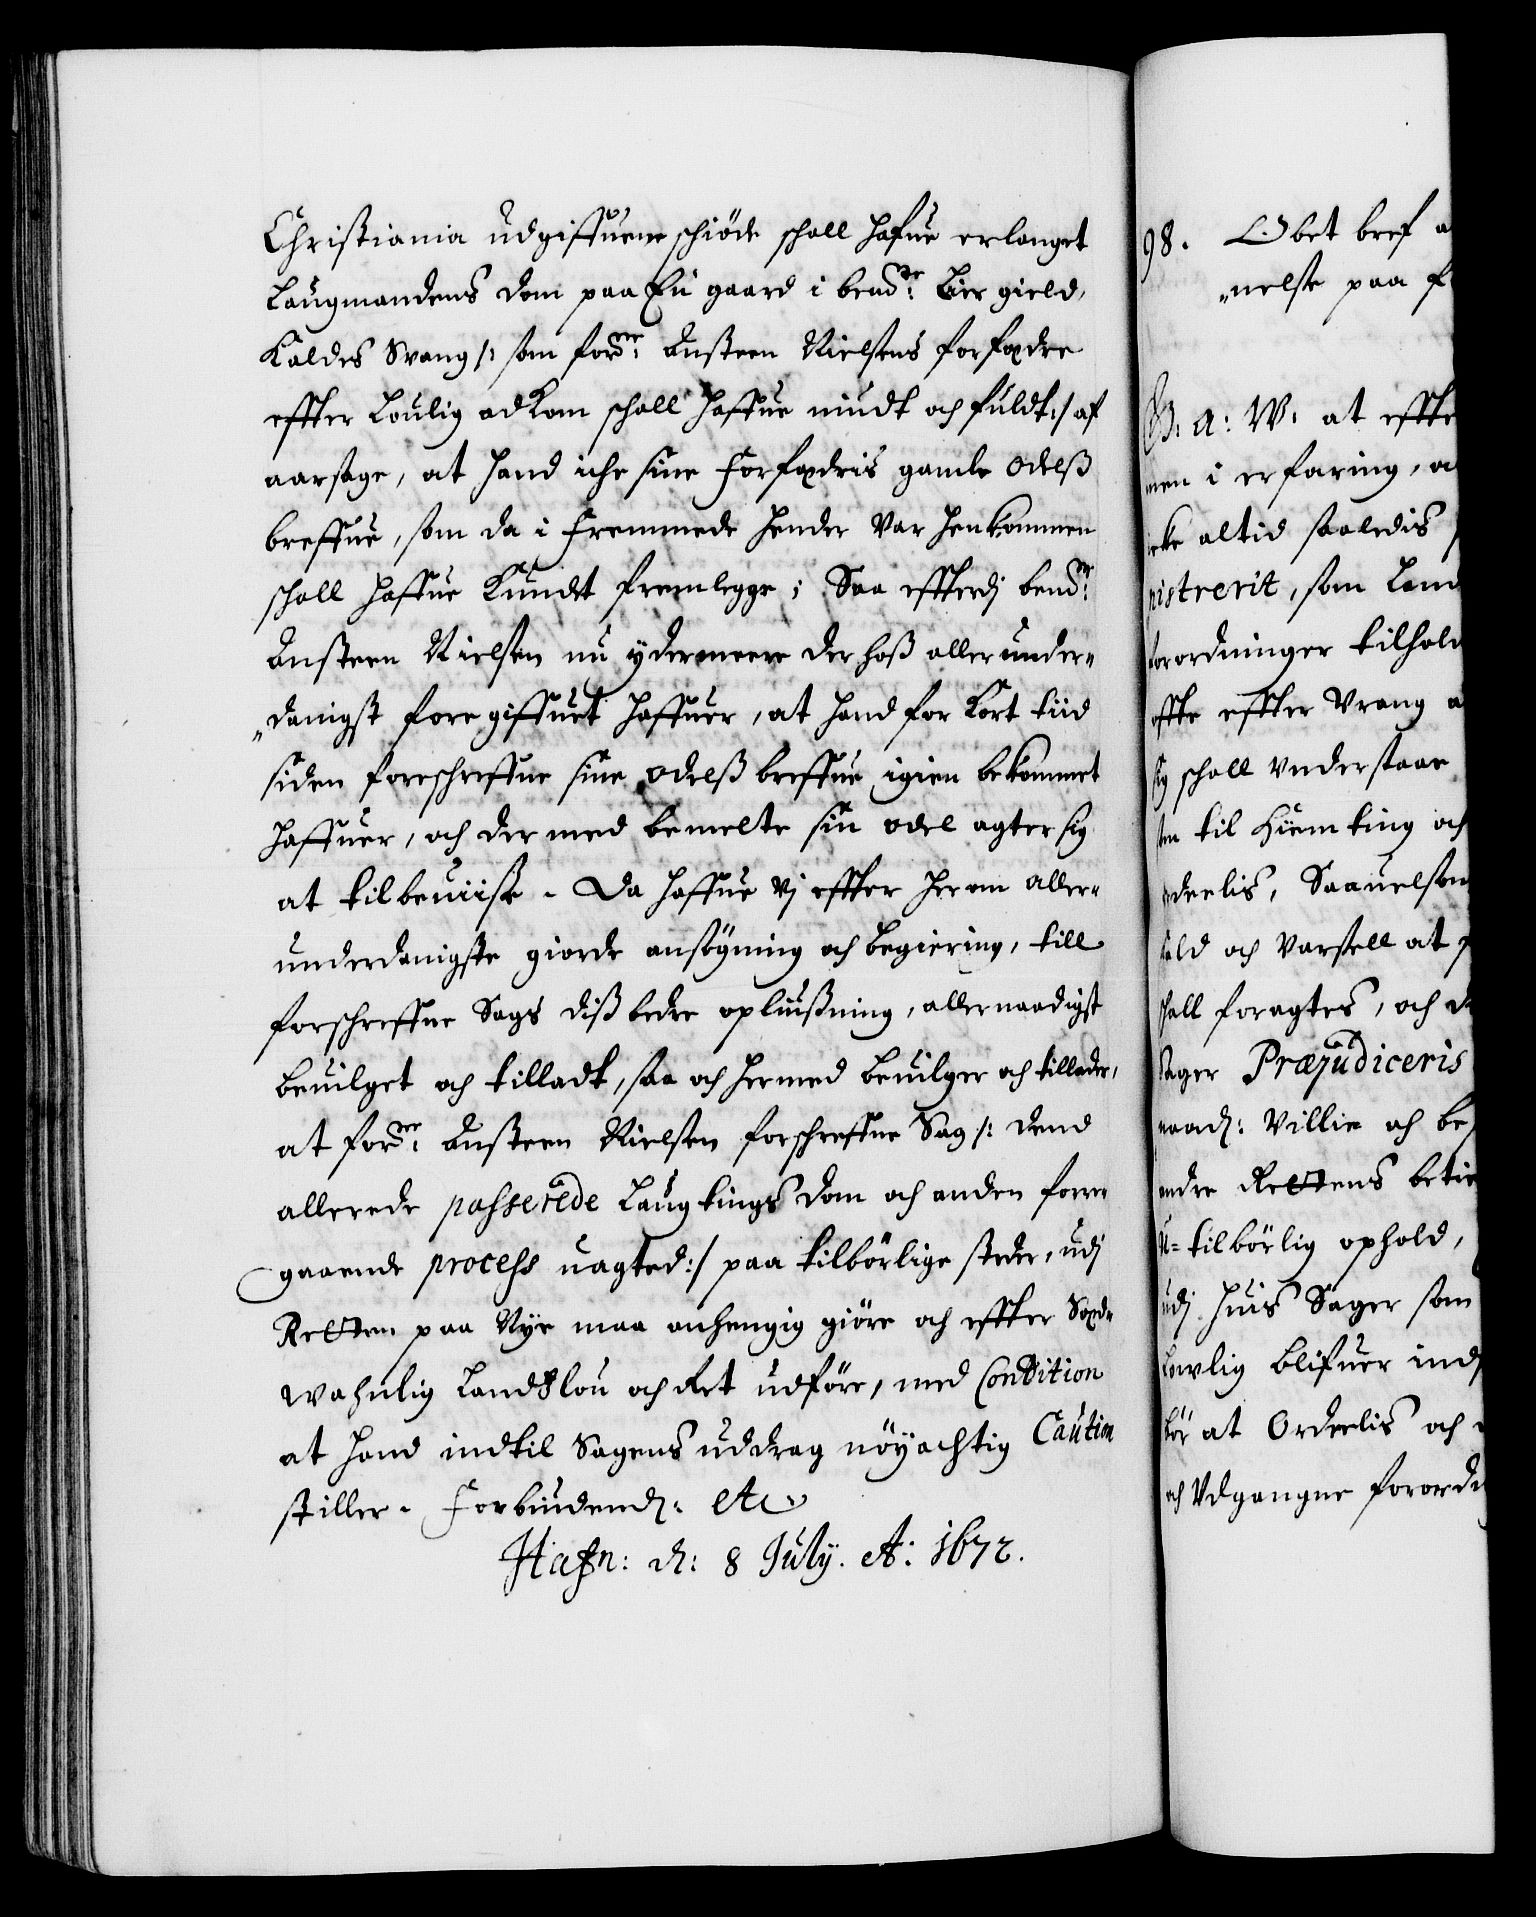 Christiania udgiffuene schiöde schall hafue erlanget
Laugmandens dom paa En gaard i bem.te Lier gield,
Kaldes Svang /: som for.ne Austeen Nielsens forfædre
effter Loulig adkom schall haffue niudt och fuldt :/ af
aarsage, at hand iche sine Forfædris gamle Odelß
breffue, som da i Fremmede hender var henkommen
schall haffue Kundt fremlegge; Saa effterdj bem.te
Austeen Nielsen nu ydermeere der hoß allerunder-
danigst fore giffuet haffuer, at hand for kort tiid
siden foreschreffne sine odelß breffue igien bekommet
haffuer, och der med bemelte sin odel agter sig
at tilbeviise. Da haffue Vj effter her om aller-
underdanigste giorde ansögning och begiering, till
forschreffne Sags diß bedre opliußning, allernaadigst
bevilget och tilladt, saa och hermed bevilger och tillader,
at for.ne Austeen Nielsen forschreffne Sag /: dend
allerede passerede Laugtings dom och anden forre-
gaaende process uagted :/ paa tilbörlige steder, udj
Retten paa Nye maa anhengig giöre och effter Sæd-
wahnlig Landslou och Ret udföre, med Condition
at hand indtil Sagens uddrag nöyachtig Caution
stiller. Forbiudend: etc.
Hafn: d: 8 July. A: 1672.
98. Obet bref a
nelse paa f
G: A: W: at effte
men i erfaring, a
icke altid saaledis
nistrerit, som Land
forordninger tilhold
offte effter Vrang a
sig schall Vnderstaae
ten til Hiemting och
ordeelis, Saauelsom
kald och Varsell at
schall foragtes, och d
Sager Præjudiceris
naad: Villie och be
andre Rettens betie
u-tilbörlig ophold,
udj huis Sager som
Lovlig blifuer ind
bör at Ordeelis och
och Vdgangne forord